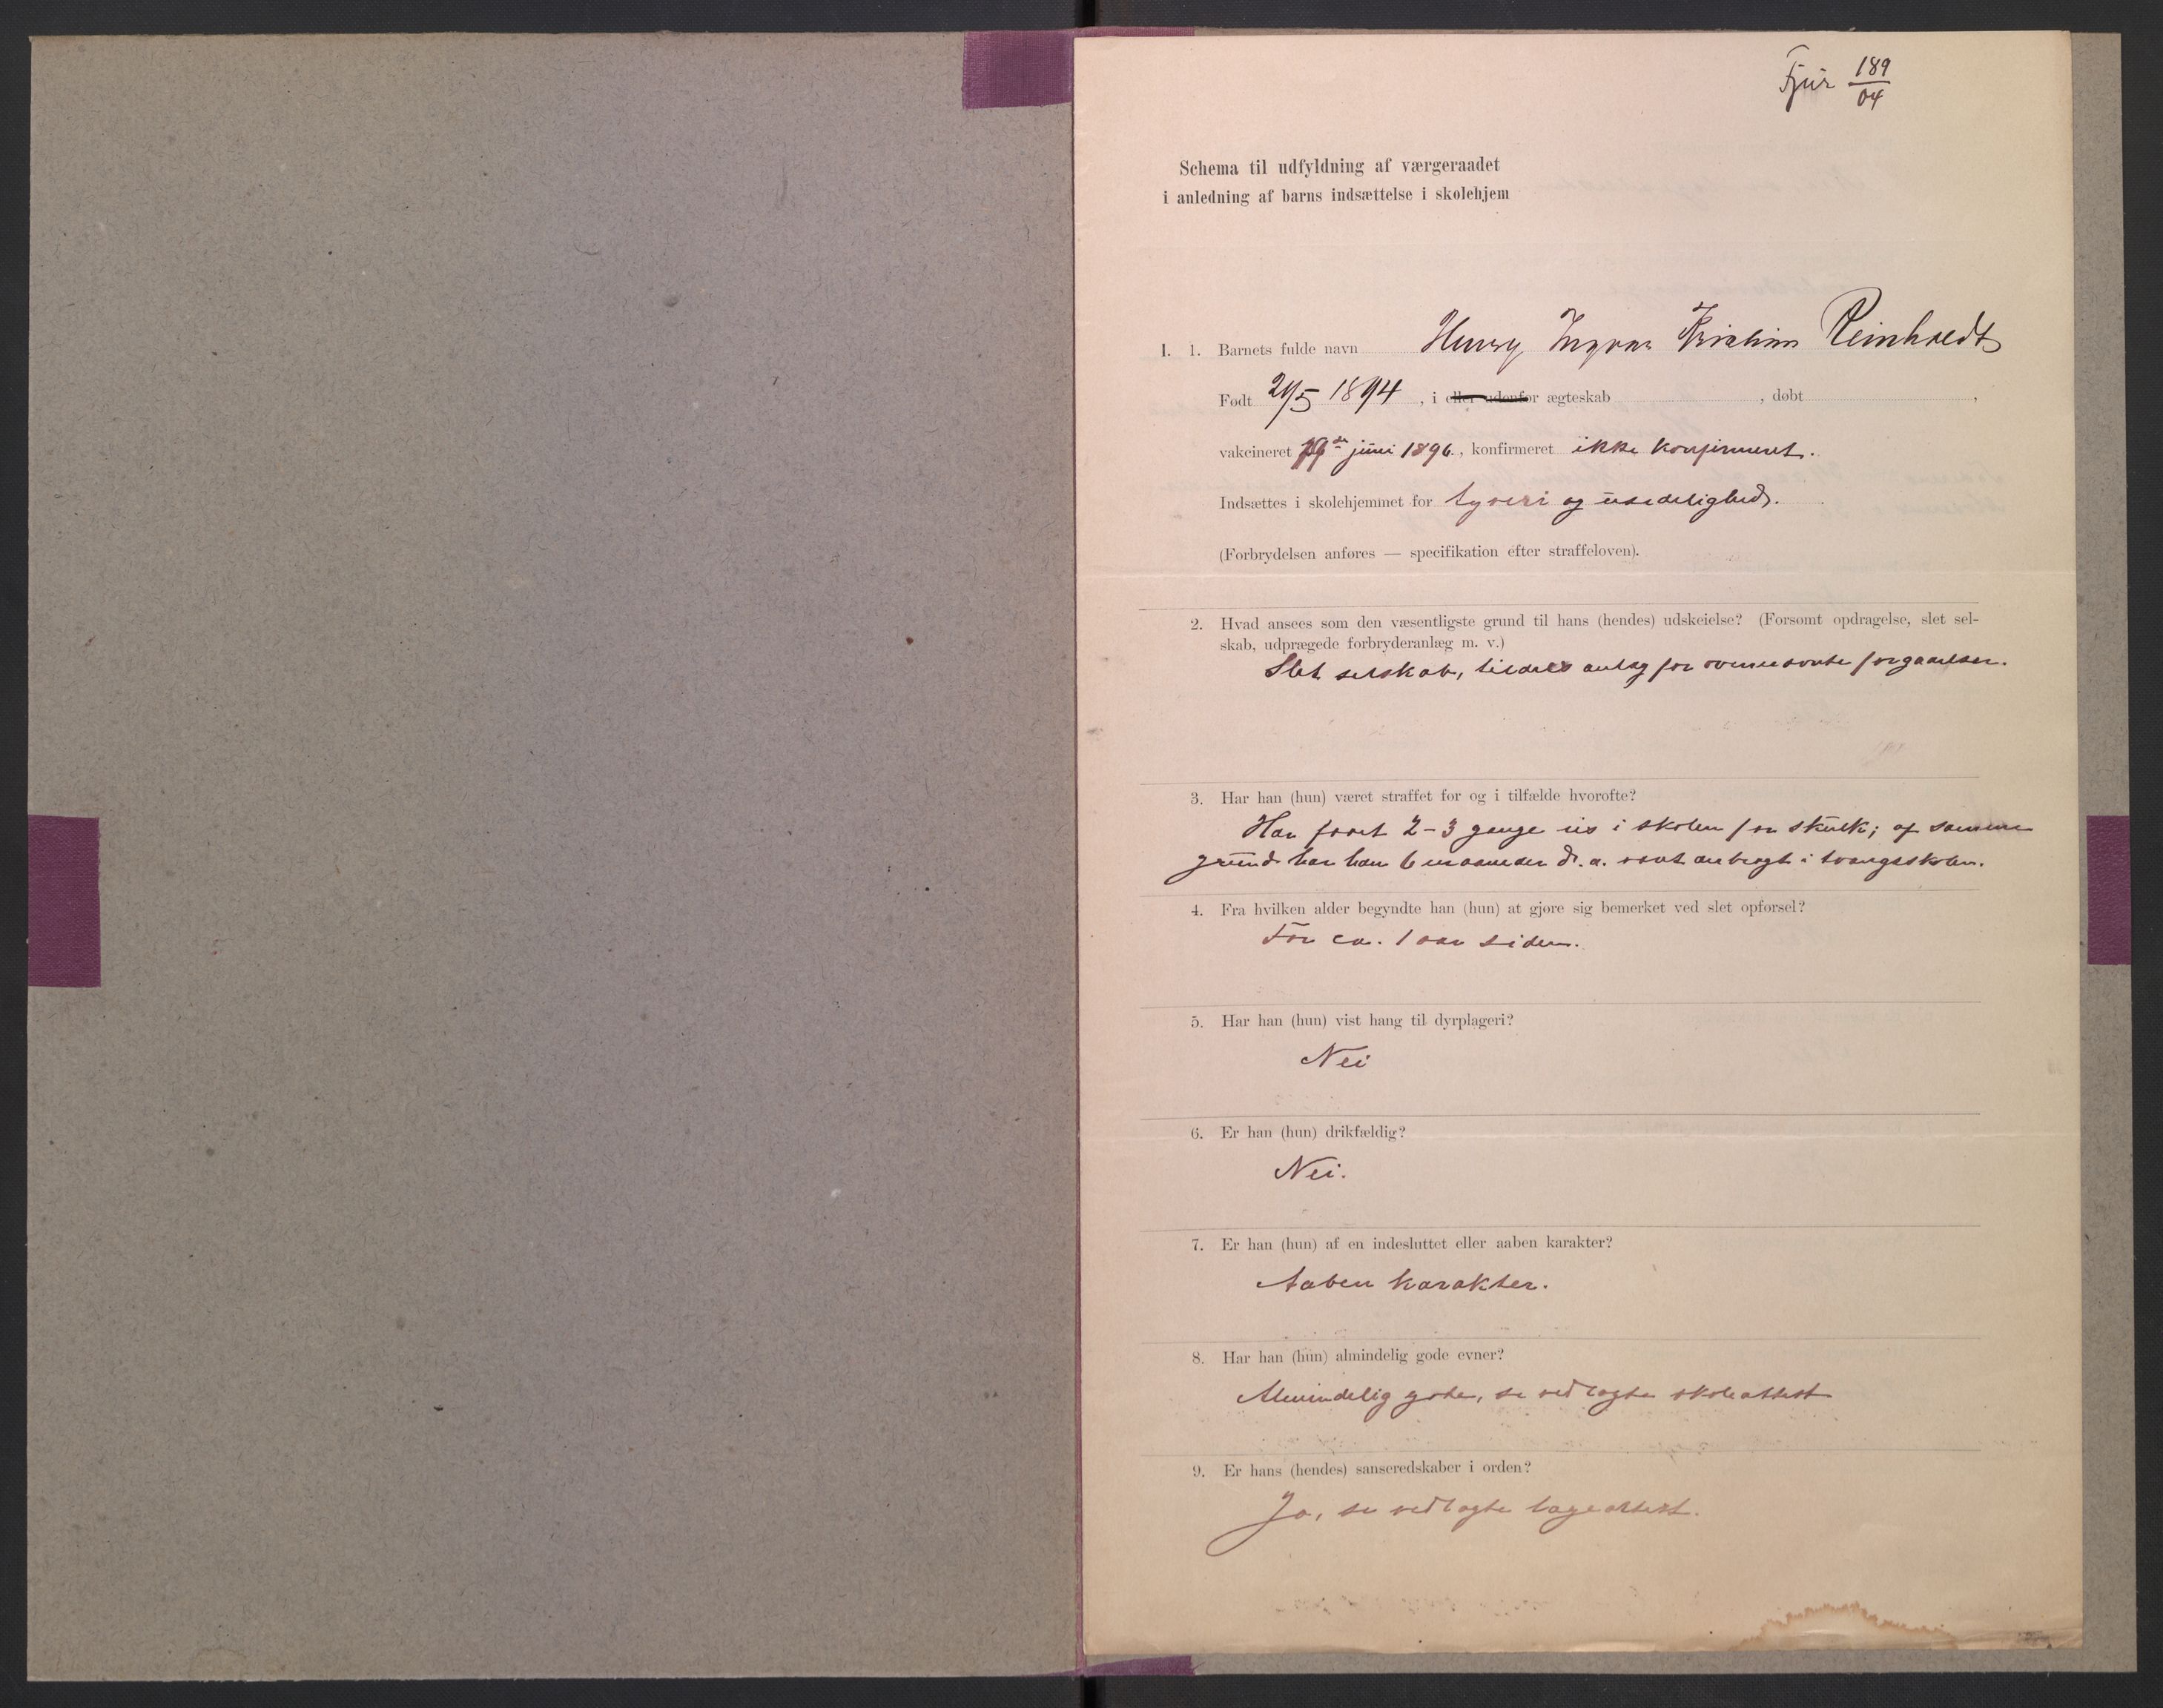 Fjür 189/04
Schema til udfyldning af værgeraadet
i anledning af barns indsættelse i skolehjem
I. 1. Barnets fulde navn Henry Ingvar Reinholdt
Født 1894, i eller udenfor ægteskab , døbt ,
vakcineret 19de juni 1896, konfirmeret ikke konfirmeret.
Indsættes i skolehjemmet for tyveri og usedelighed.
(Forbrydelsen anføres — specifikation efter straffeloven).
2. Hvad ansees som den væsentligste grund til hans (hendes) udskeielse? (Forsømt opdragelse, slet sel-
skab, udprægede forbryderanlæg m. v.)
Slet selskab, tildels anlæg for ovennævnte forgaaelser.
3. Har han (hun) været straffet før og i tilfælde hvorofte?
Har faaet 2-3 gange ris i skolen for skulk; af samme
grund har han 6 maaneder d. a. været anbragt i tvangsskolen.
4. Fra hvilken alder begyndte han (hun) at gjøre sig bemerket ved slet opførsel?
For ca. 1 aar siden.
5. Har han (hun) vist hang til dyrplageri?
Nei
6. Er han (hun) drikfældig?
Nei.
7. Er han (hun) af en indesluttet eller aaben karakter?
Aaben karakter.
8. Har han (hun) almindelig gode evner?
Almindelig gode, se vedlagte skoleattest
9. Er hans (hendes) sanseredskaber i orden?
Ja, se vedlagte lægeattest.